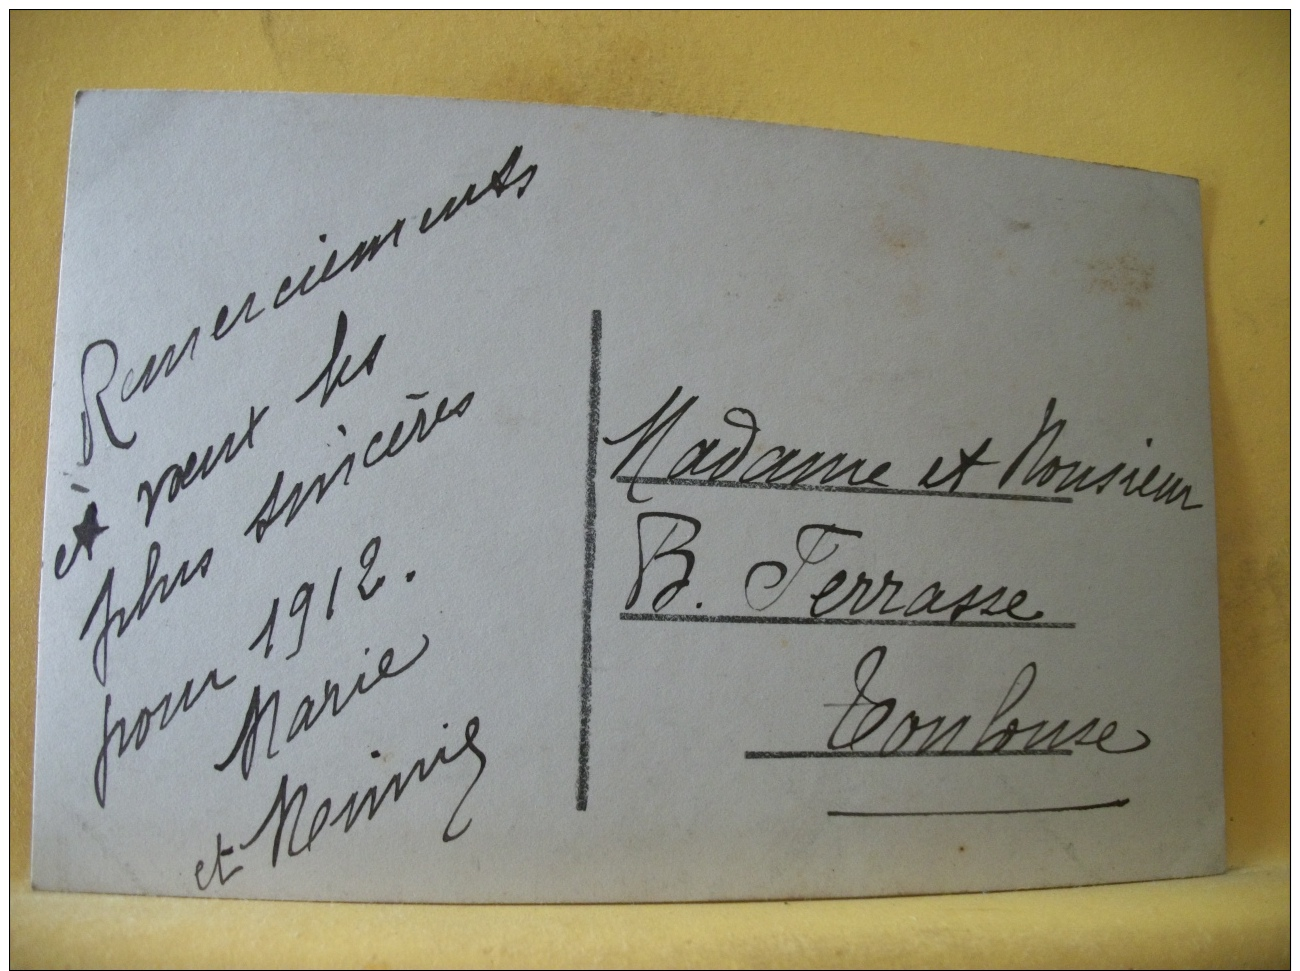 Remerciements
et vœux les
plus sincères
pour 1912.
Marie
et
Madame et Monsieur
B. Terrasse
Toulouse